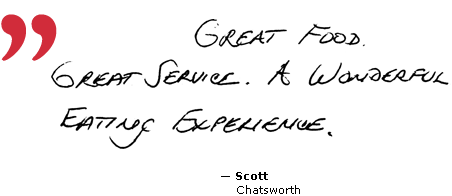 ”
GREAT FOOD.
GREAT SERVICE. A WONDERFUL
EATING EXPERIENCE.
— Scott
Chatsworth